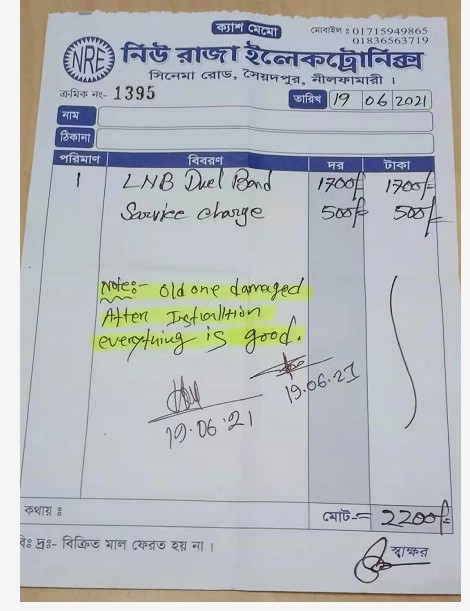 ক্যাশ মেমো
মোবাইল : 01715949865
01836563719
NRE
নিউ রাজা ইলেকট্রোনিক্স
সিনেমা রোড, সৈয়দপুর, নীলফামারী ।
ক্রমিক নং- 1395
তারিখ 19 06 2021
নাম
ঠিকানা
পরিমাণ বিবরণ দর টাকা
1 LNB Duel Band 1700/- 1700/-
Sarvice charge 500/- 500/-
Note:- Old one damaged
After Instrallation
everything is good.
19.06.21
19.06.21
কথায় :
মোট-= 2200/-
বিঃ দ্রঃ- বিক্রিত মাল ফেরত হয় না ।
স্বাক্ষর